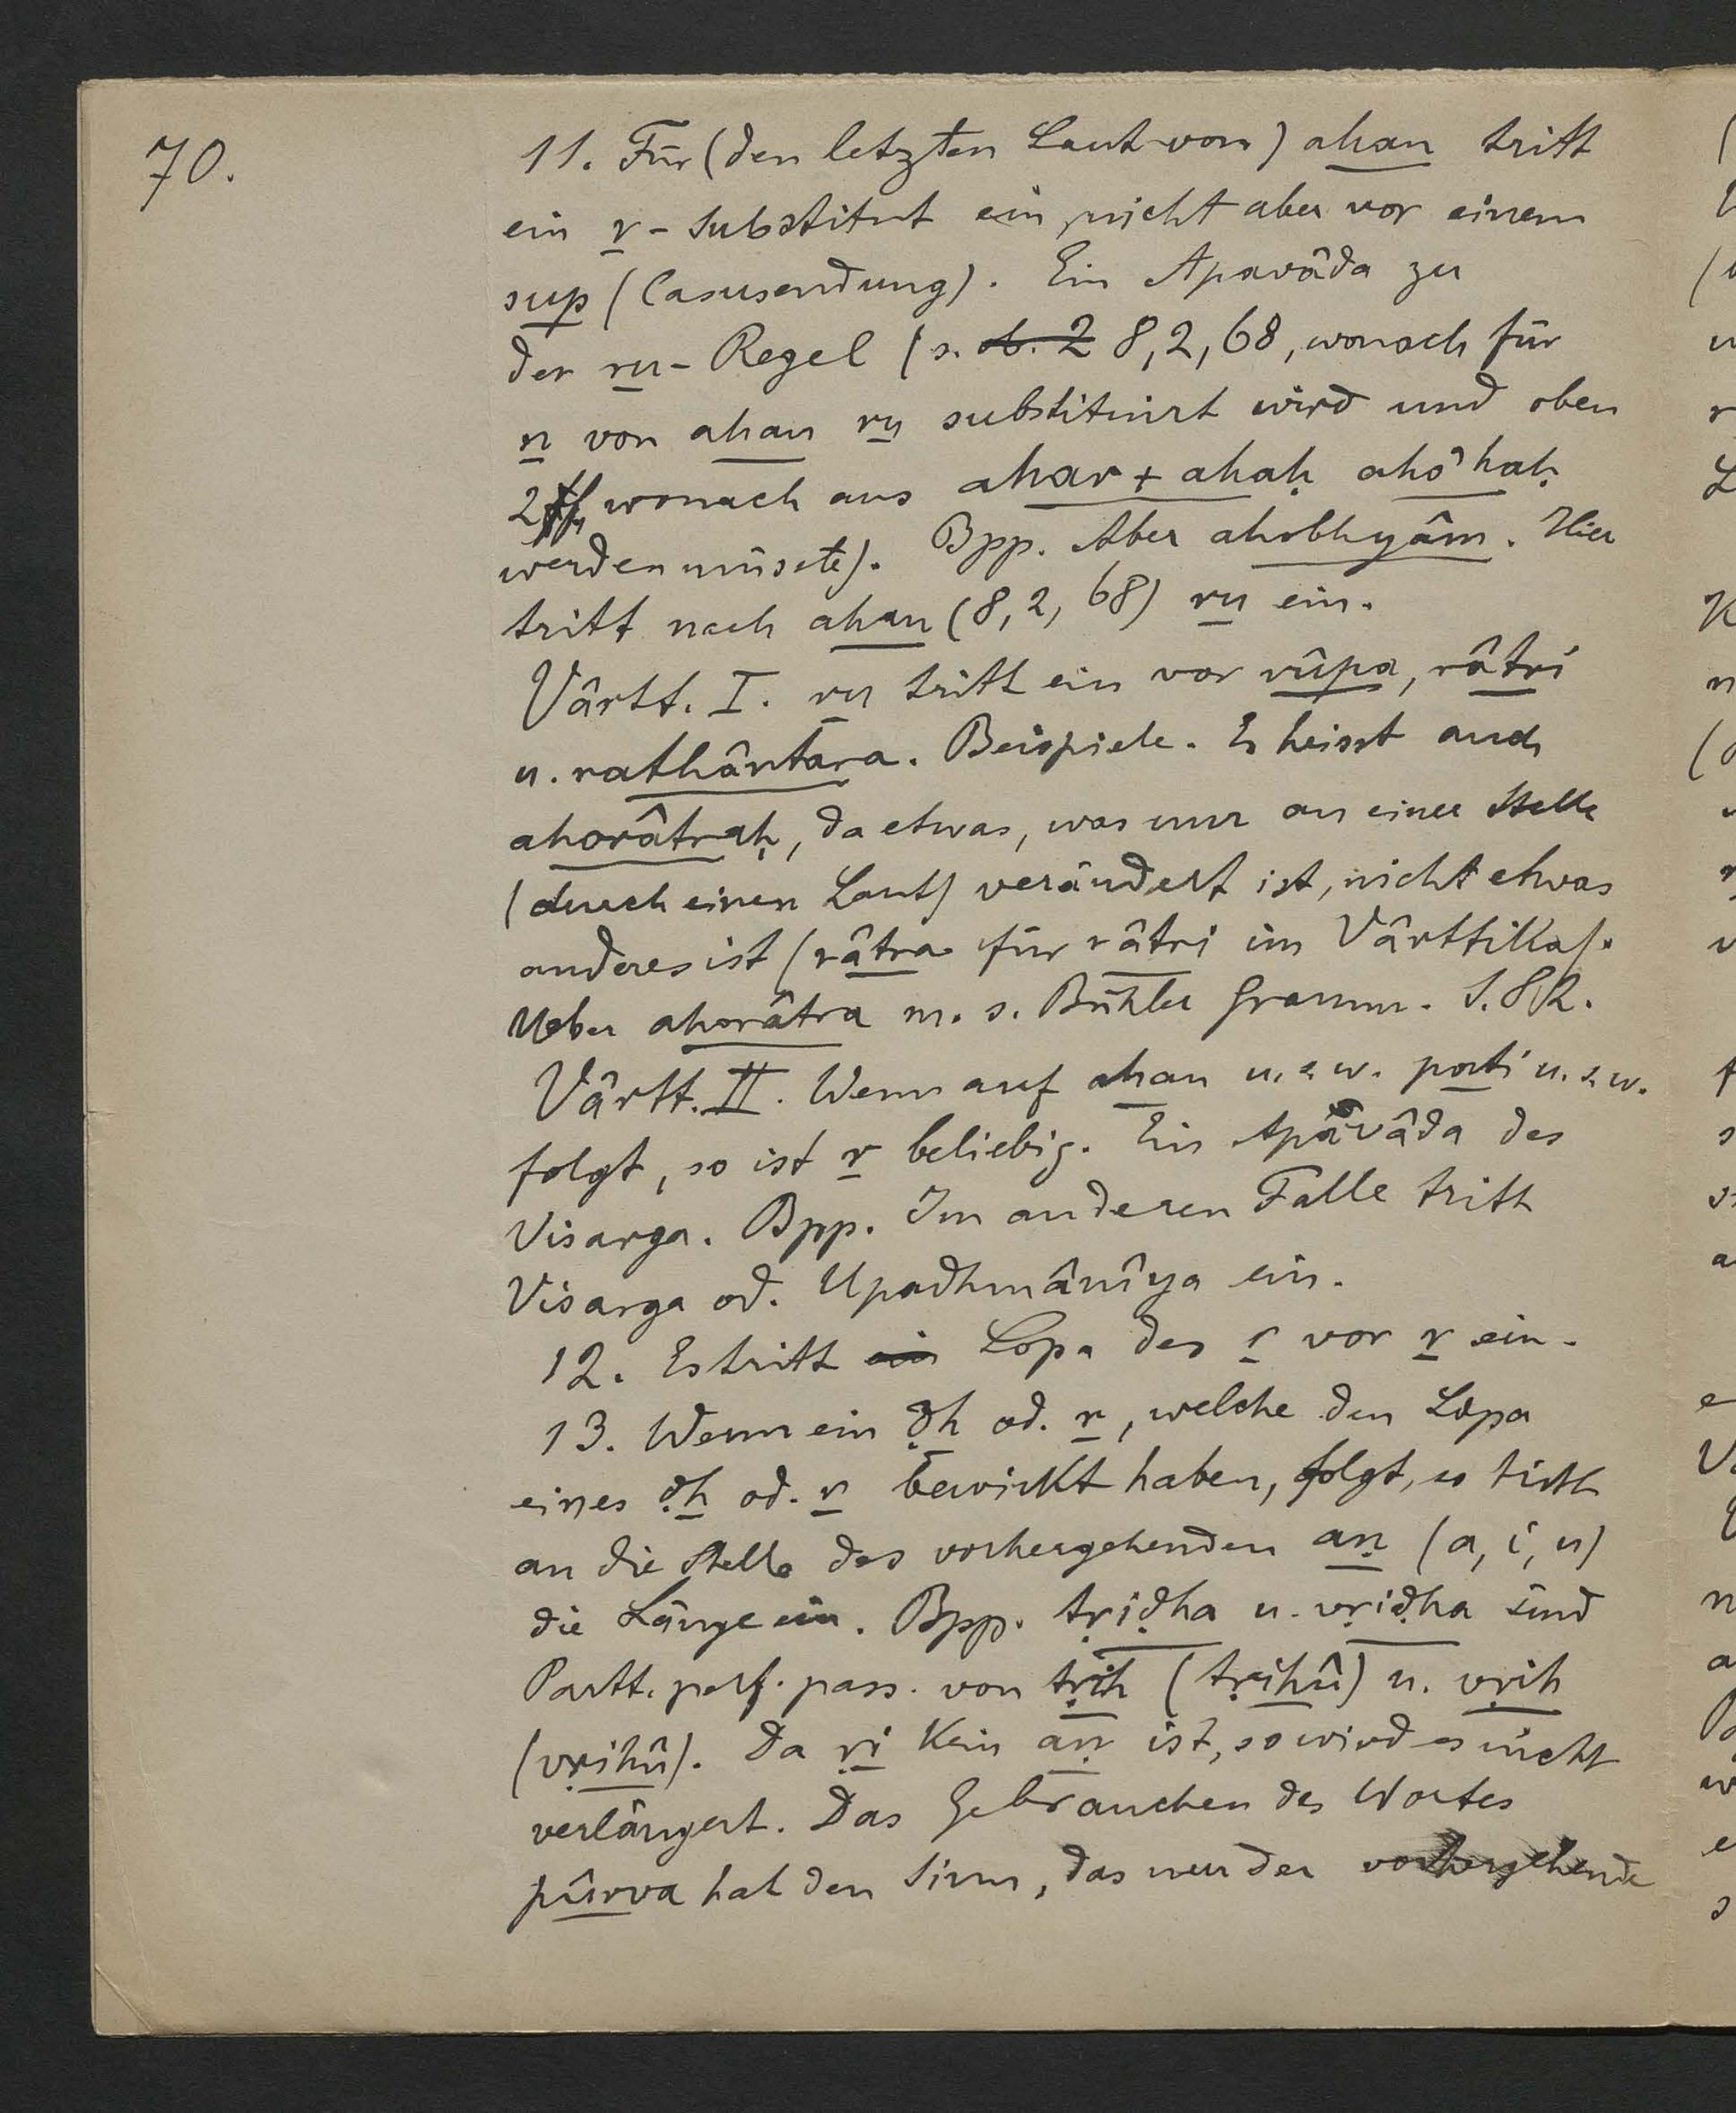 70.
11. Für (den letzten Laut von) ahan tritt
ein r-Substitut ein, nicht aber vor einem
sup (Casusendung). Ein Apavâda zu
der ru-Regel (s. ob. 2 8,2,68, wonach für
n von ahan ru substituirt wird und oben
2 ff, wonach aus ahar + ahaḥ aho'haḥ
werden müsste). Bpp. Aber ahobhyâm. Hier
tritt nach ahan (8,2,68) ru ein.
Vârtt. I. ru tritt ein vor rûpa, râtri
u. rathântara. Beispiele. Es heisst auch
ahorâtraḥ, da etwas, was nur an einer Stelle
(durch einen Laut) verändert ist, nicht etwas
anderes ist (râtra für râtri im Vârttika).
Ueber ahorâtra m. s. Bühler Gramm. S. 82.
Vârtt. II. Wenn auf ahan u. s. w. pati u. s. w.
folgt, so ist r beliebig. Ein Apavâda des
Visarga. Bpp. Im anderen Falle tritt
Visarga od. Upadhmânîya ein.
12. Es tritt ein Lopa des r vor r ein.
13. Wenn ein ḍh od. r, welche den Lopa
eines ḍh od. r bewirkt haben, folgt, so tritt
an die Stelle des vorhergehenden aṇ (a, i, u)
die Länge ein. Bpp. tṛiḍha u. vṛiḍha sind
Partt. perf. pass. von tṛih (tṛihû) u. vṛih
(vṛihû). Da ṛi kein aṇ ist, so wird es nicht
verlängert. Das Gebrauchen des Wortes
pûrva hat den Sinn, das nur der vorhergehende